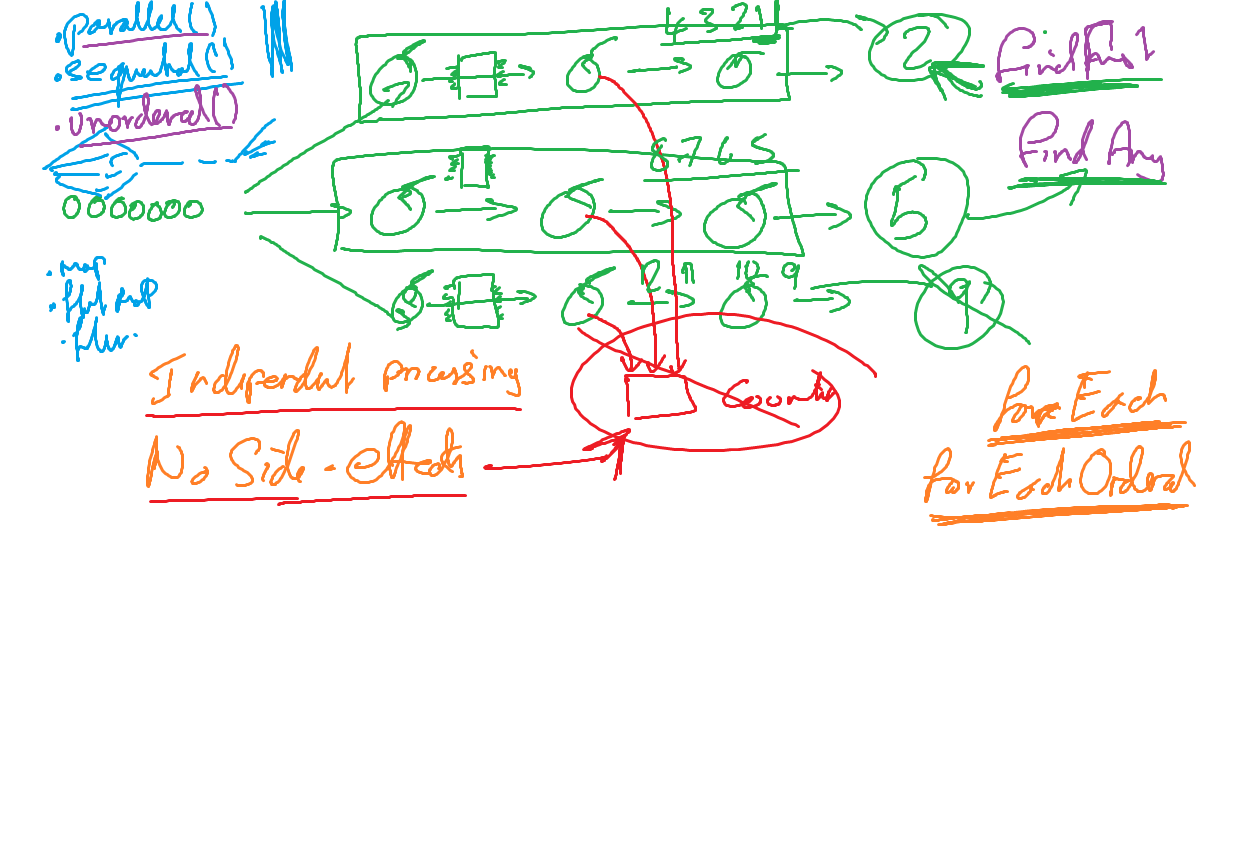 .parallel()
.sequential()
.unordered()
0000000
.map
.flatMap
.filter.
4 3 2 1
2
findFirst
8 7 6 5
5
Find Any
12 11 10 9
9
Counter
Independent processing
No Side-effects
for Each
for Each Ordered